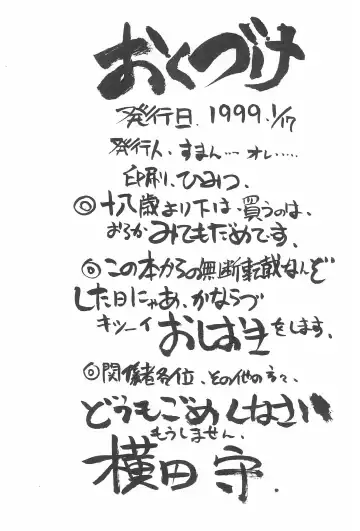 おくづけ
発行日. 1999.1/17
発行人、すまん…オレ……
印刷、ひみつ、
◎十八歳より下は、買うのは、
おろかみてもだめです、
◎この本からの無断転載なんぞ
した日にゃあ、かならづ
キツーイおしおきをします、
◎関係者各位、その他の方々、
どうもごめんなさい
もうしません、
横田守.